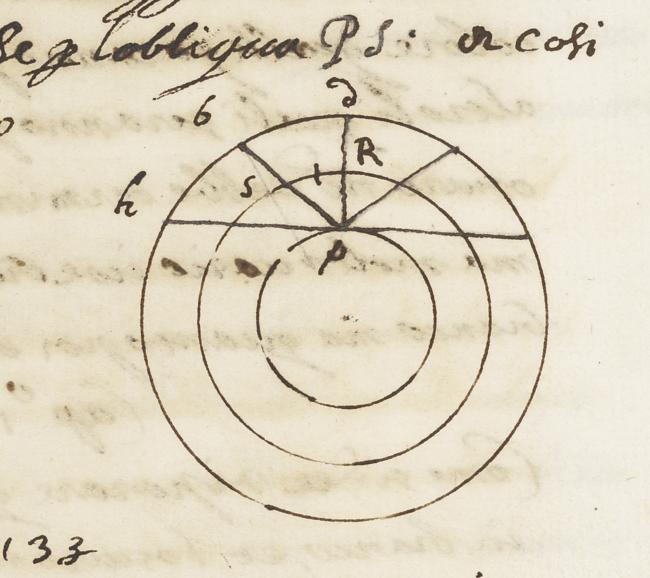 se p l'obliqua PS: et cosi
b
d
R
h
s
t
P
133